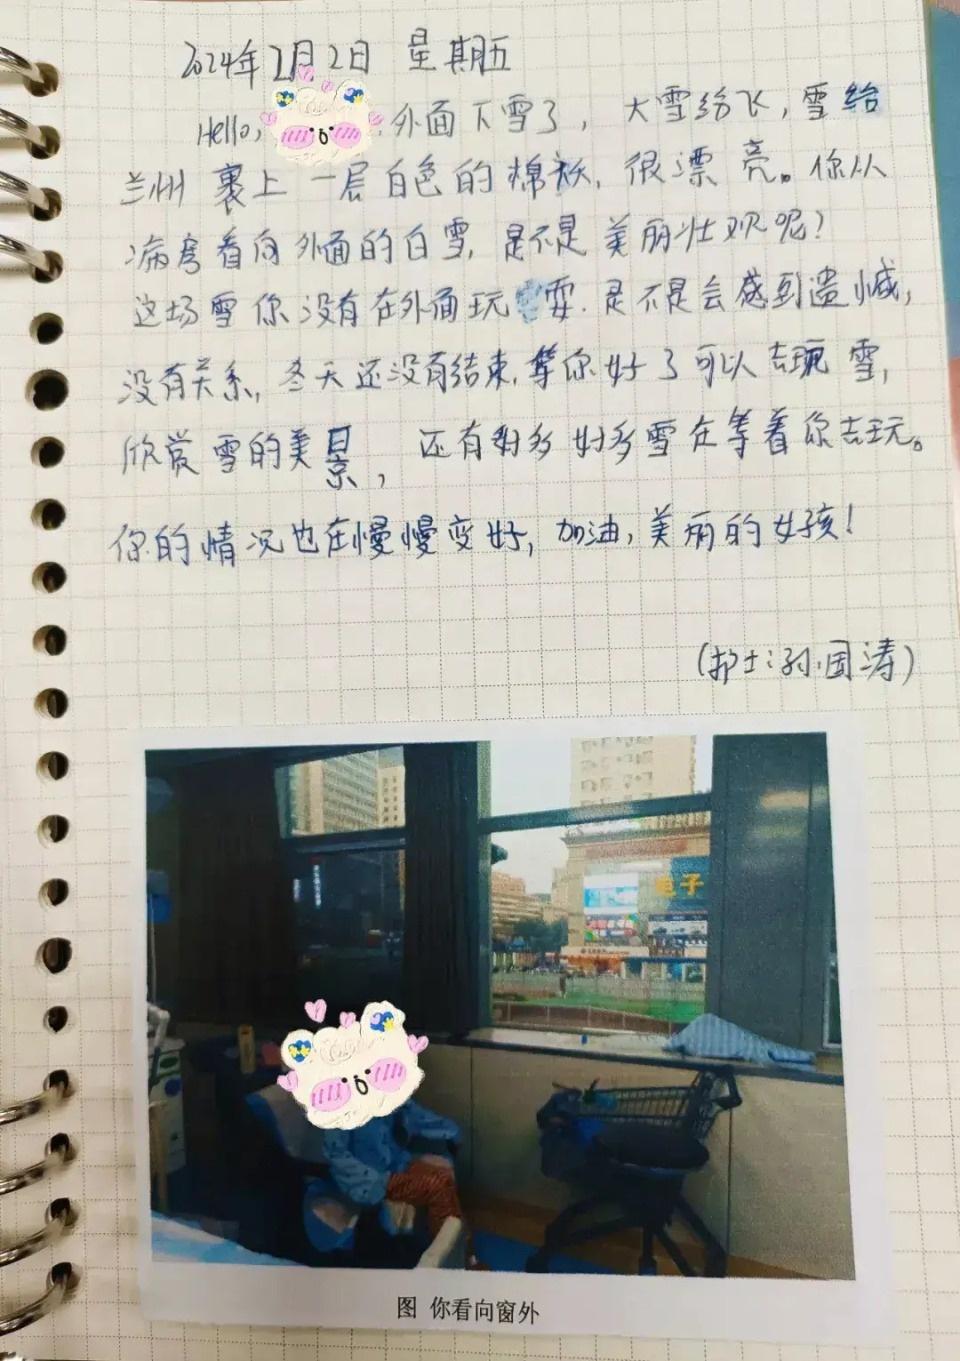 2024年2月2日 星期五
Hello, 外面下雪了，大雪纷飞，雪给
兰州裹上一层白色的棉袄，很漂亮。你从
病房看向外面的白雪，是不是美丽壮观呢？
这场雪你没有在外面玩耍.是不是会感到遗憾，
没有关系，冬天还没有结束，等你好了可以去玩雪，
欣赏雪的美景，还有好多好多雪在等着你去玩。
你的情况也在慢慢变好，加油，美丽的女孩！
(护士：孙国涛)
电子
图 你看向窗外